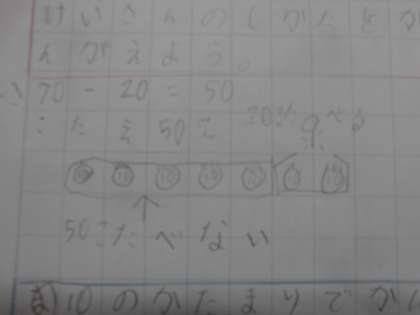 けいさんのしかたをか
んがえよう。
70-20=50
こたえ50こ 20こたべる
⑩⑩⑩⑩⑩⑩⑩
50こたべない
ま10のかたまりでかん